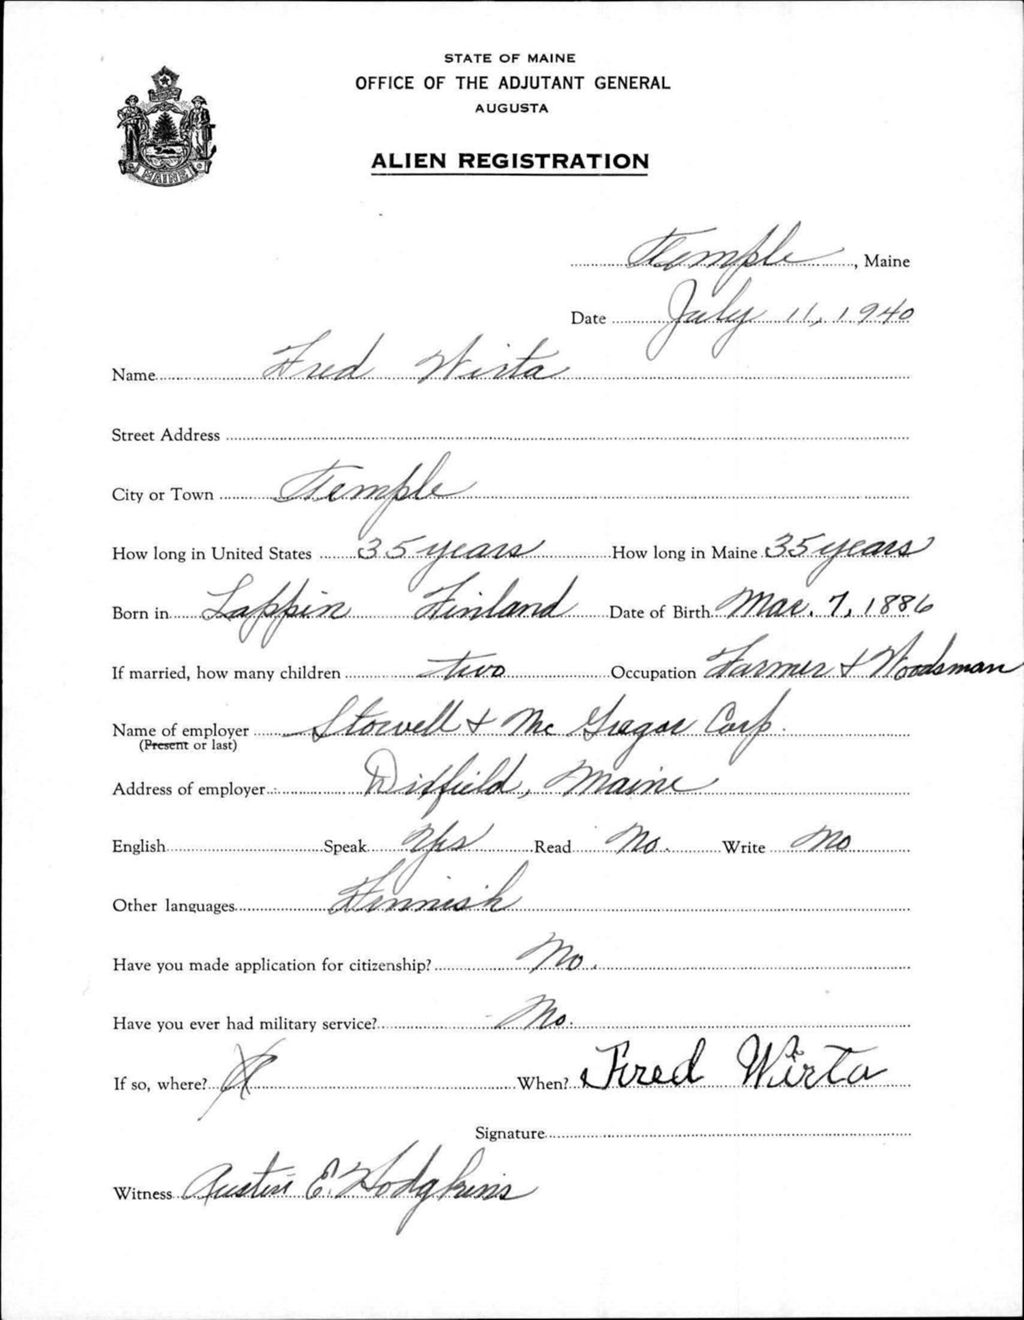 STATE OF MAINE
OFFICE OF THE ADJUTANT GENERAL
AUGUSTA
ALIEN REGISTRATION
MAINE
Temple, Maine
Date July 11, 1940
Name Fred Wirta
Street Address
City or Town Temple
How long in United States 35 years How long in Maine 35 years
Born in Lappin Finland Date of Birth Mar. 7, 1886
If married, how many children two Occupation Farmer & Woodsman
Name of employer Stowell & Mc Gregor Corp.
(Present or last)
Address of employer Dixfield, Maine
English Speak Yes Read No. Write No
Other languages Finnish
Have you made application for citizenship? No.
Have you ever had military service? No.
If so, where? X When? Fred Wirta
Signature
Witness Austin E. Hodgkins